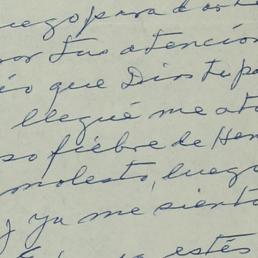 luego para darte
por tus atencion
éo que Dios te pa
llegué me ata
so fiebre de Hen
molesto, luego
y ya me siento
estés